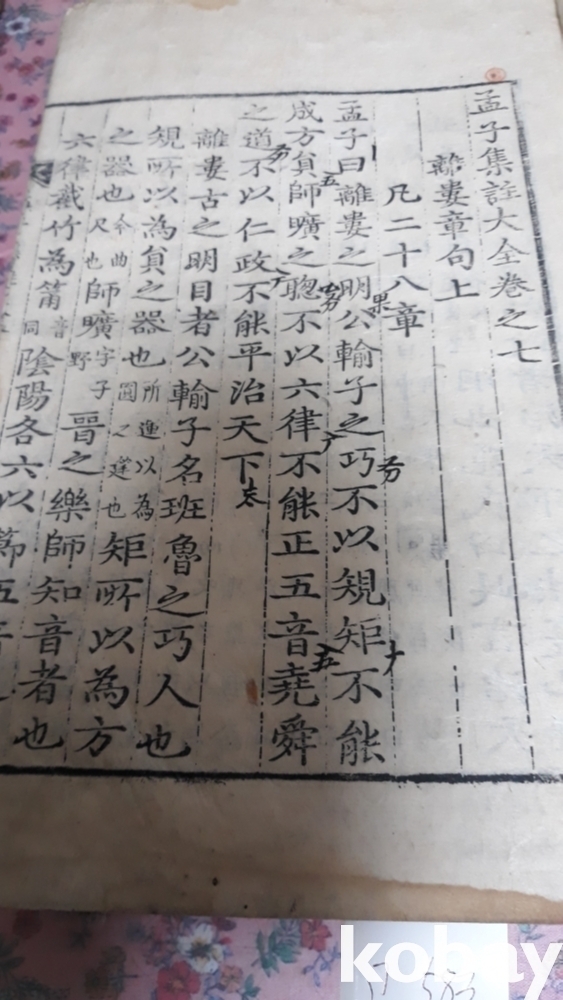 孟子集註大全卷之七
離婁章句上
凡二十八章
孟子曰離婁之明公輸子之巧不以規矩不能
成方負師曠之聰不以六律不能正五音堯舜
之道不以仁政不能平治天下
離婁古之明目者公輸子名班魯之巧人也
規所以為負之器也所運以為圓之筳也矩所以為方
之器也今曲尺也師曠字子野晉之樂師知音者也
六律截竹為筩音同陰陽各六以節五音
kobay